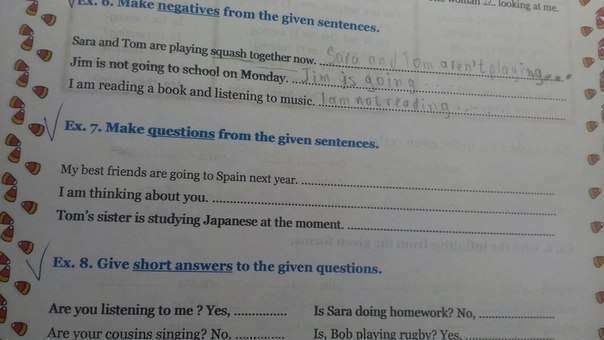 Ex. 6. Make negatives from the given sentences.
looking at me.
Sara and Tom are playing squash together now. Sara and Tom aren't playing...
Jim is not going to school on Monday. Jim is going ...
I am reading a book and listening to music. I am not reading ...
Ex. 7. Make questions from the given sentences.
My best friends are going to Spain next year. ................
I am thinking about you. ................
Tom's sister is studying Japanese at the moment. ................
Ex. 8. Give short answers to the given questions.
Are you listening to me ? Yes, .............. Is Sara doing homework? No, ....................
Are your cousins singing? No, .............. Is, Bob playing rugby? Yes, ....................